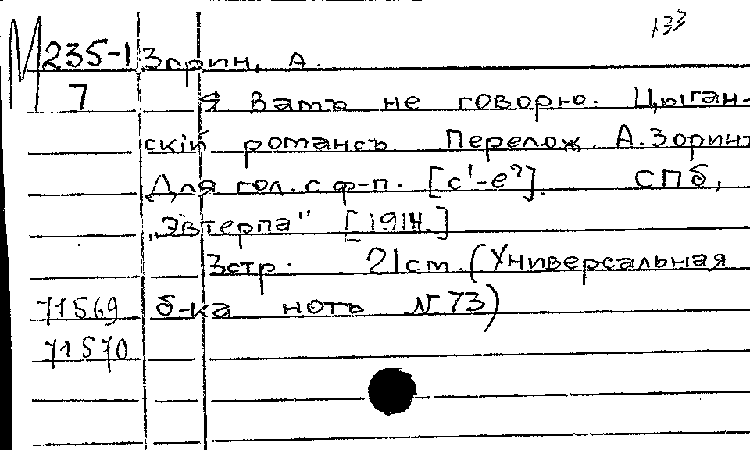 133
М 235-1 Зорин, А.
7 Я Вамъ не говорю. Цыган-
скій романсъ. Перелож. А. Зоринъ
Для гол. с ф-п. [c¹-e²]. СПб,
"Эвтерпа" [1914.]
3стр. 21см. (Универсальная
71569 б-ка нотъ N 73)
71570